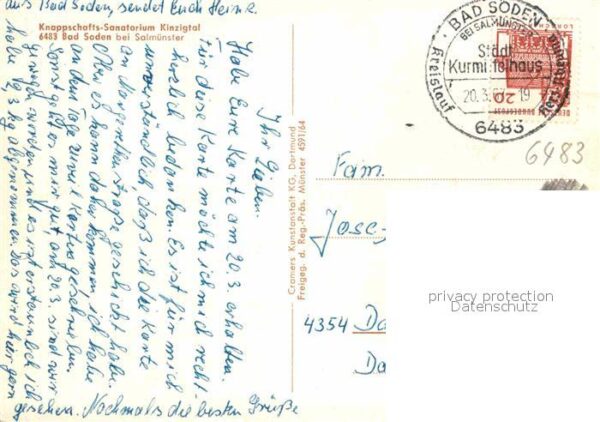 Knappschafts-Sanatorium Kinzigtal
6483 Bad Soden bei Salmünster
Ihr Lieben.
Habe Eure Karte am 20.3. erhalten.
Für diese Karte möchte ich mich recht
herzlich bedanken. Es ist für mich
unverständlich, daß ich die Karte
am Margarethenstraße geschickt habe.
Aber es kann daher kommen, ich habe
an dem Tage zuviel Karten geschrieben.
Sonst geht es mir gut am 20.3. sind wir
gewogen worden und es ist erstaunlich ich
habe 1,3 kg abgenommen. Das wird hier gern
gesehen. Nochmals die besten Grüße
aus Bad Soden, sendet Euch Heinz.
Cramers Kunstanstalt KG, Dortmund
Freigeg. d. Reg.-Präs. Münster 4591/64
BAD SODEN
BEI SALMÜNSTER
Städt
Kurmittelhaus
Kreislauf
20.3. 19
6483
20
DEUTSCHE BUNDESPOST
6483
Fam.
Jose
4354 Da
Da
privacy protection
Datenschutz